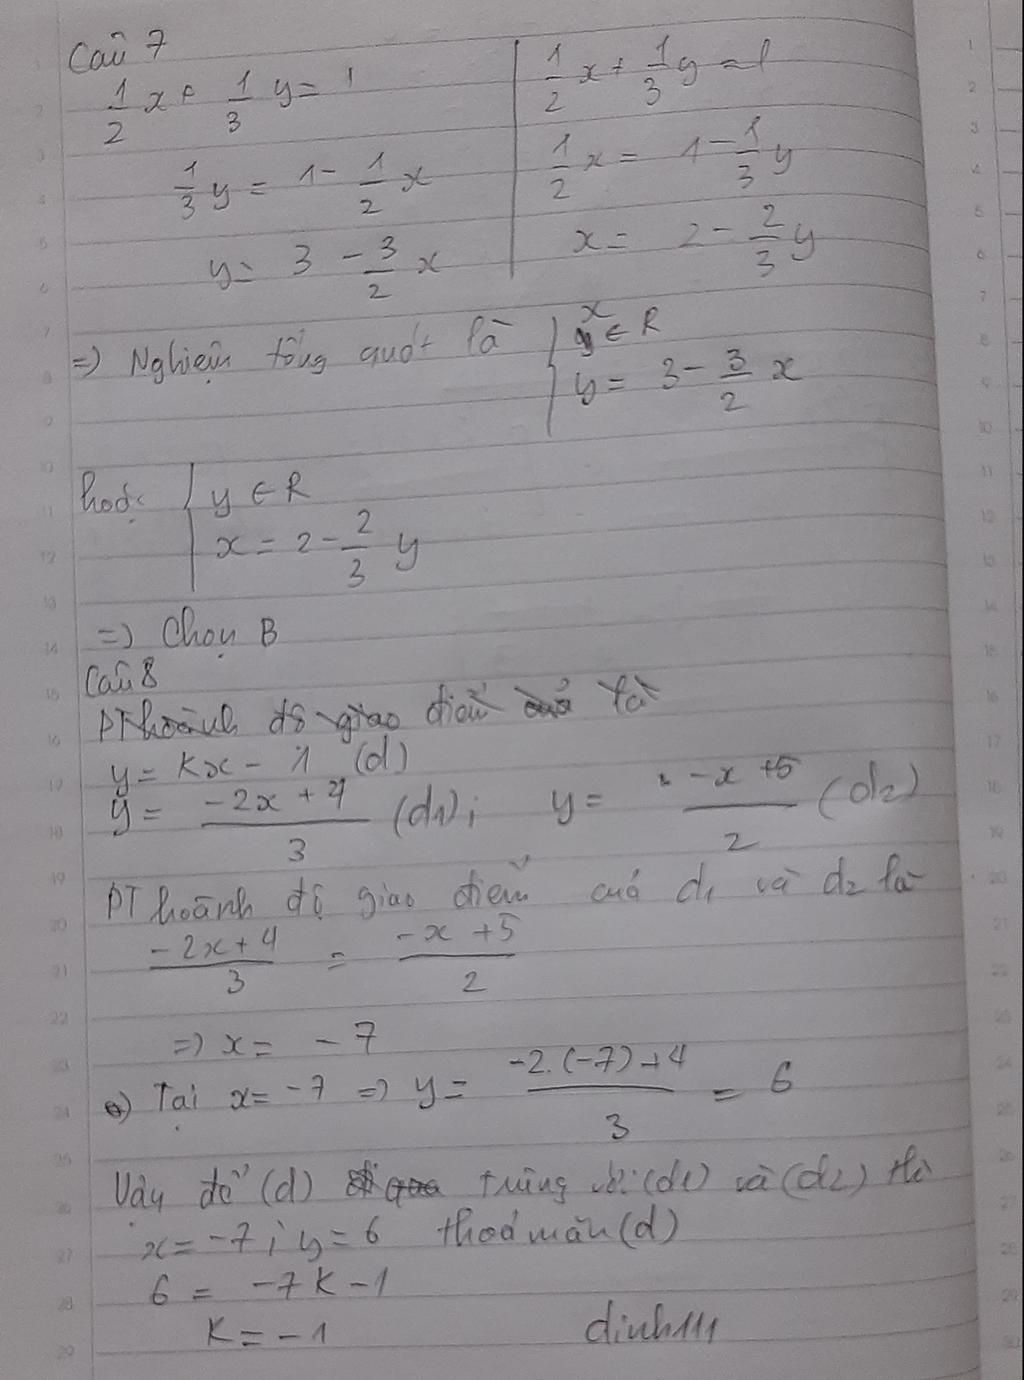 Câu 7
1/2 x + 1/3 y = 1
1/3 y = 1 - 1/2 x
y = 3 - 3/2 x
1/2 x + 1/3 y = 1
1/2 x = 1 - 1/3 y
x = 2 - 2/3 y
=) Nghiệm tổng quát là { x ∈ R
y = 3 - 3/2 x
hoặc { y ∈ R
x = 2 - 2/3 y
=) Chọn B
Câu 8
PT hoành độ giao điểm là
y = kx - 1 (d)
y = (-2x + 4)/3 (d1); y = (-x + 5)/2 (d2)
PT hoành độ giao điểm cuả d1 và d2 là
(-2x + 4)/3 = (-x + 5)/2
=) x = -7
+) Tại x = -7 =) y = (-2.(-7) + 4)/3 = 6
Vậy để (d) trùng với (d1) và (d2) thì
x = -7; y = 6 thoả mãn (d)
6 = -7k - 1
k = -1
dinh111